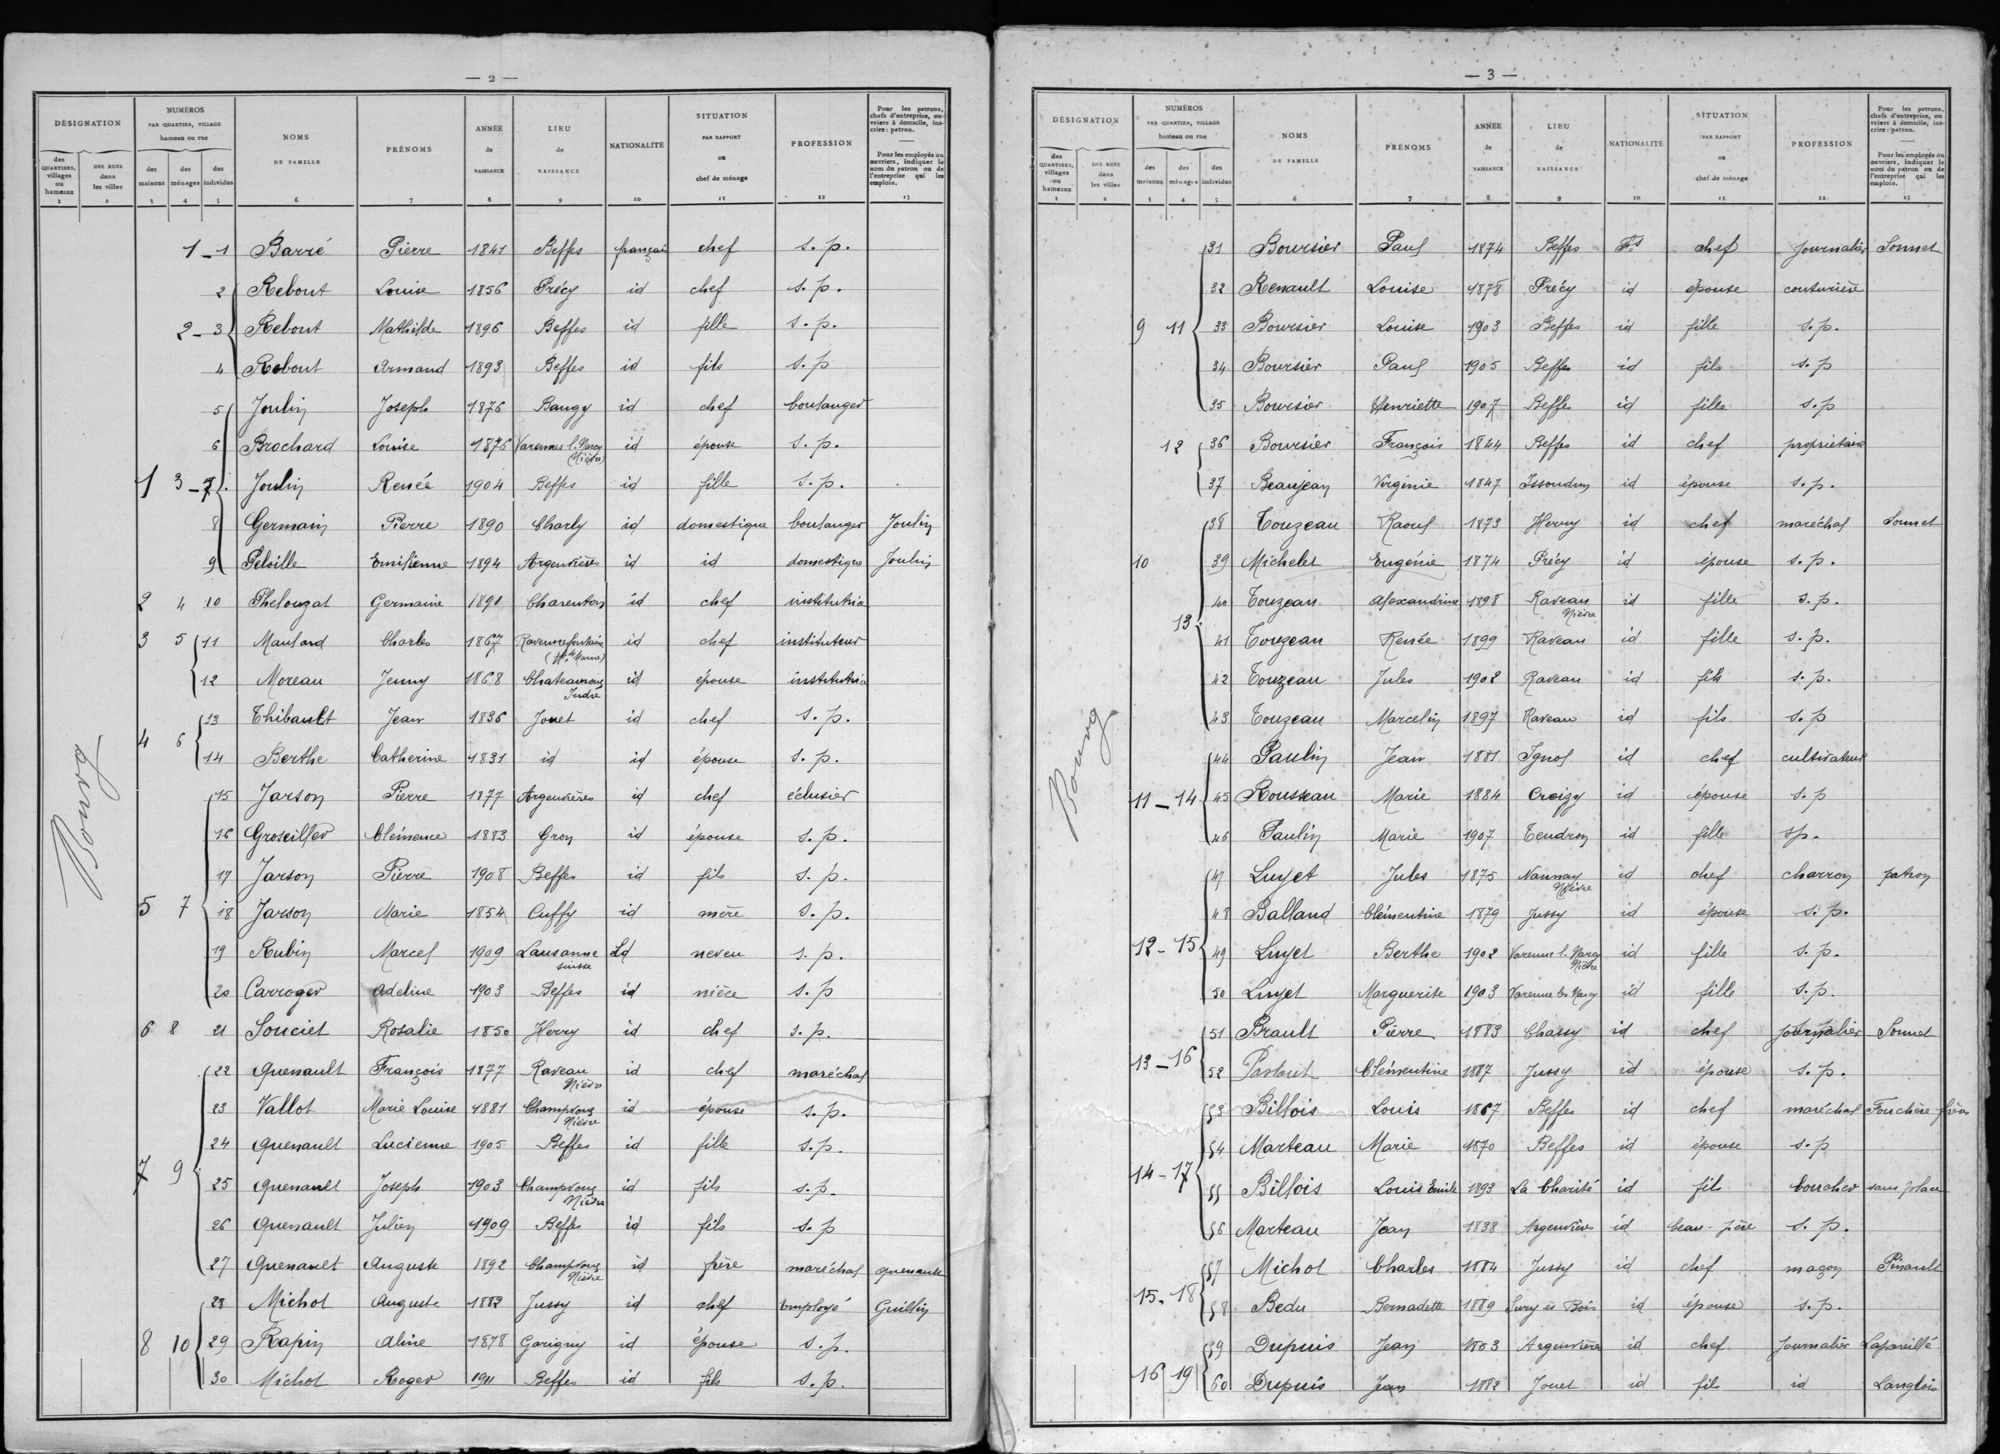 — 2 —
DÉSIGNATION NUMÉROS PAR QUARTIER, VILLAGE hameau ou rue NOMS DE FAMILLE PRÉNOMS ANNÉE de NAISSANCE LIEU de NAISSANCE NATIONALITÉ SITUATION PAR RAPPORT au chef de ménage PROFESSION Pour les patrons, chefs d'entreprise, ouvriers à domicile, inscrire : patron. Pour les employés ou ouvriers, indiquer le nom du patron ou de l'entreprise qui les emploie.
des QUARTIERS, villages ou hameaux DES RUES dans les villes des maisons des ménages des individus
1 2 3 4 5 6 7 8 9 10 11 12 13
Bourg
1 - 1 Barré Pierre 1841 Beffes français chef s. p.
2 Rebout Louise 1856 Précy id chef s. p.
2 - 3 Rebout Mathilde 1896 Beffes id fille s. p.
4 Rebout Armand 1893 Beffes id fils s. p
5 Joulin Joseph 1876 Baugy id chef boulanger
6 Brochard Louise 1876 Varennes l. Narcy (Nièvre) id épouse s. p.
1 3 - 7 Joulin Renée 1904 Beffes id fille s. p.
8 Germain Pierre 1890 Charly id domestique boulanger Joulin
9 Peloille Emilienne 1894 Argenvières id id domestique Joulin
2 4 10 Phelouzat Germaine 1891 Charenton id chef institutrice
3 5 11 Maulard Charles 1867 Ravennefontaine (Hte Marne) id chef instituteur
12 Moreau Jenny 1868 Chateauroux Indre id épouse institutrice
13 Thibault Jean 1836 Jouet id chef s. p.
4 6 14 Berthe Catherine 1831 id id épouse s. p.
15 Jarson Pierre 1877 Argenvières id chef éclusier
16 Groseiller Clémence 1883 Gron id épouse s. p.
17 Jarson Pierre 1908 Beffes id fils s. p.
5 7 18 Jarson Marie 1854 Cuffy id mère s. p.
19 Rubin Marcel 1909 Lausanne suisse Id neveu s. p.
20 Carroger Adeline 1903 Beffes id nièce s. p
6 8 21 Souciet Rosalie 1850 Herry id chef s. p.
22 Quenault François 1877 Raveau Nièvre id chef maréchal
23 Vallot Marie Louise 1881 Champvoux Nièvre id épouse s. p.
24 Quenault Lucienne 1905 Beffes id fille s. p.
7 9 25 Quenault Joseph 1903 Champvoux Nièvre id fils s. p.
26 Quenault Julien 1909 Beffes id fils s. p
27 Quenault Auguste 1892 Champvoux Nièvre id frère maréchal Quenault
28 Michot Auguste 1882 Jussy id chef employé Guillin
8 10 29 Rapin Aline 1878 Garigny id épouse s. p.
30 Michot Roger 1911 Beffes id fils s. p.
— 3 —
DÉSIGNATION NUMÉROS PAR QUARTIER, VILLAGE hameau ou rue NOMS DE FAMILLE PRÉNOMS ANNÉE de NAISSANCE LIEU de NAISSANCE NATIONALITÉ SITUATION PAR RAPPORT au chef de ménage PROFESSION Pour les patrons, chefs d'entreprise, ouvriers à domicile, inscrire : patron. Pour les employés ou ouvriers, indiquer le nom du patron ou de l'entreprise qui les emploie.
des QUARTIERS, villages ou hameaux DES RUES dans les villes des maisons des ménages des individus
1 2 3 4 5 6 7 8 9 10 11 12 13
Bourg
31 Boursier Paul 1874 Beffes Fs chef journalier Sonnet
32 Renault Louise 1878 Précy id épouse couturière
9 11 33 Boursier Louise 1903 Beffes id fille s. p.
34 Boursier Paul 1905 Beffes id fils s. p
35 Boursier Henriette 1907 Beffes id fille s. p
12 36 Boursier François 1844 Beffes id chef propriétaire
37 Beaujean Virginie 1847 Issoudun id épouse s. p.
38 Touzeau Raoul 1873 Herry id chef maréchal Sonnet
10 39 Michelet Eugénie 1874 Précy id épouse s. p.
40 Touzeau Alexandrine 1898 Raveau Nièvre id fille s. p.
13 41 Touzeau Renée 1899 Raveau id fille s. p.
42 Touzeau Jules 1902 Raveau id fils s. p.
43 Touzeau Marcelin 1897 Raveau id fils s. p
44 Paulin Jean 1881 Ignol id chef cultivateur
11 - 14 45 Rousseau Marie 1884 Croizy id épouse s. p
46 Paulin Marie 1907 Tendron id fille sp.
47 Luyet Jules 1875 Nannay Nièvre id chef charron patron
48 Balland Clémentine 1879 Jussy id épouse s. p.
12 - 15 49 Luyet Berthe 1902 Varenne l. Narcy Nièvre id fille s. p.
50 Luyet Marguerite 1903 Varenne les Narcy id fille s. p.
51 Brault Pierre 1883 Chassy id chef journalier Sonnet
13 - 16 52 Clémentine 1887 Jussy id épouse s. p.
53 Billois Louis 1867 Beffes id chef maréchal Fouchère frères
54 Marteau Marie 1870 Beffes id épouse s. p
14 - 17 55 Billois Louis Emile 1893 La Charité id fils boucher sans place
56 Marteau Jean 1838 Argenvières id beau-père s. p.
57 Michot Charles 1884 Jussy id chef maçon Pinault
15 - 18 58 Bedu Bernadette 1889 Sury ès Bois id épouse s. p.
59 Dupuis Jean 1853 Argenvières id chef journalier Lapareillé
16 19 60 Dupuis Jean 1882 Jouet id fils id Langlois